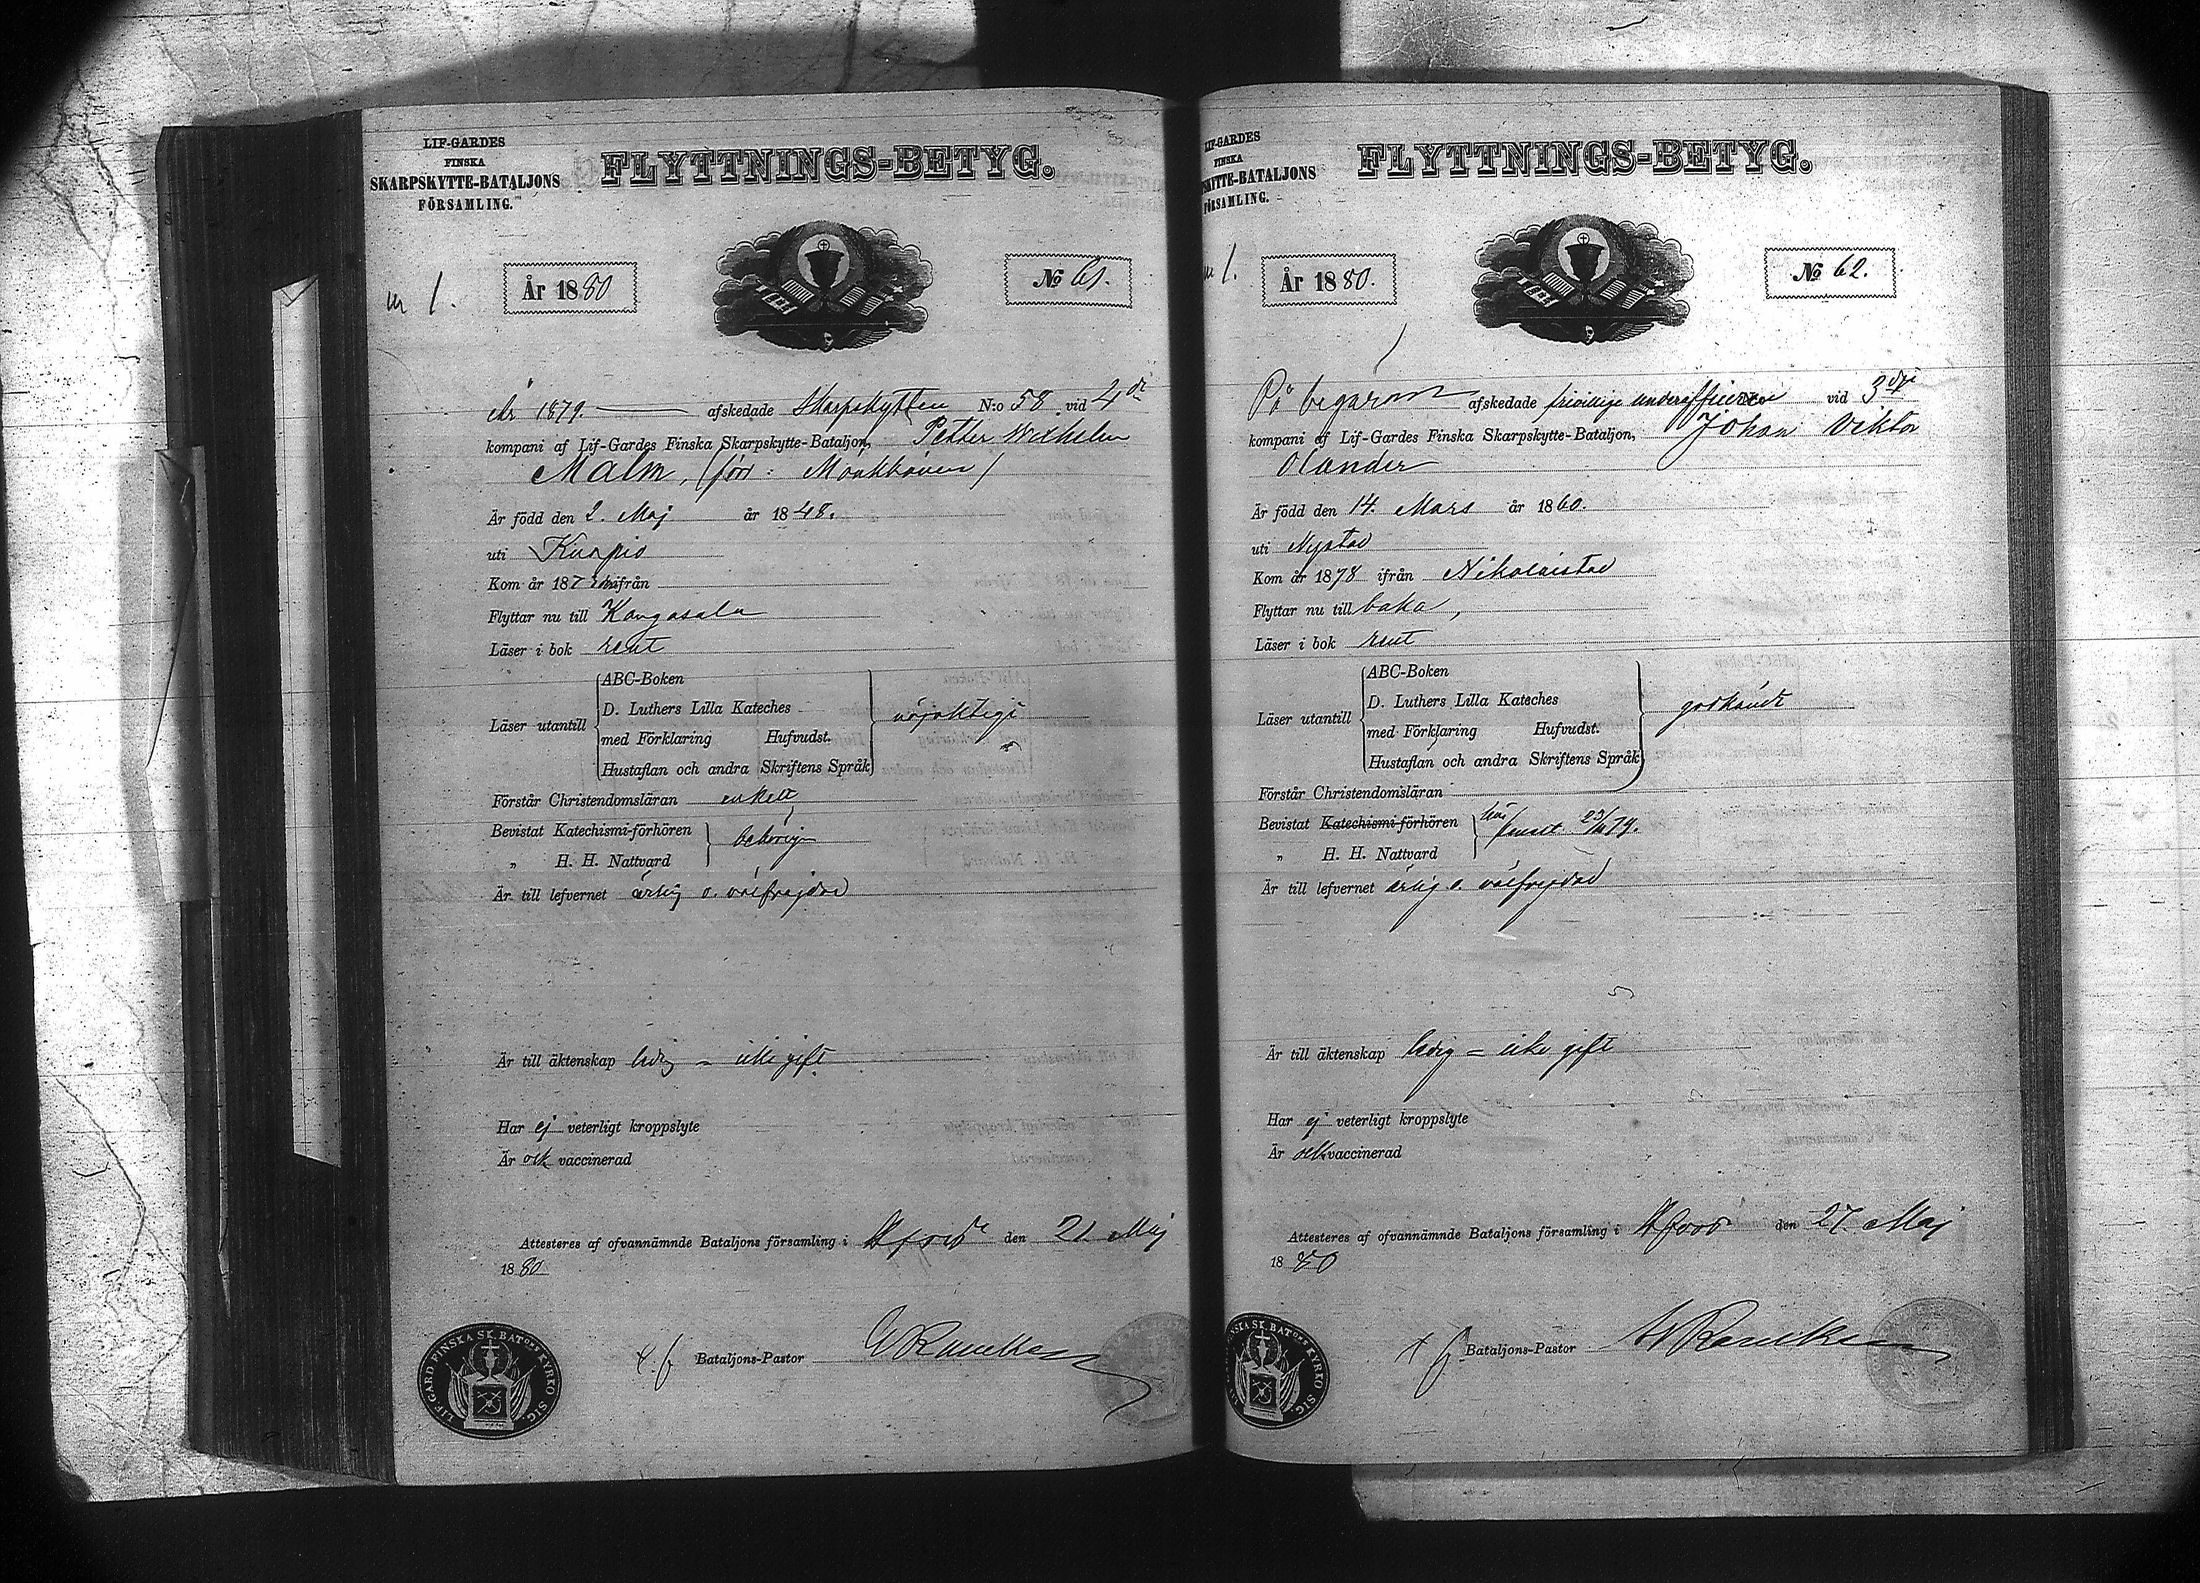 LIF-GARDES
FINSKA
SKARPSKYTTE-BATALJONS
FÖRSAMLING.
FLYTTNINGS-BETYG.
1.
År 1880
No 61.
År 1879. afskedade Skarpskytten N:o 58 vid 4de
kompani af Lif-Gardes Finska Skarpskytte-Bataljon, Petter Wilhelm
Malm, (för:
Är född den 2. Maj år 1848.
uti Kuopio
Kom år 187 ifrån
Flyttar nu till Kangasala
Läser i bok rent
Läser utantill
ABC-Boken
D. Luthers Lilla Kateches
med Förklaring Hufvudst.
Hustaflan och andra Skriftens Språk
nöjaktigt
Förstår Christendomsläran enkelt
Bevistat Katechismi-förhören
„ H. H. Nattvard
behörig
Är till lefvernet ärlig o. välfrejdad
Är till äktenskap ledig = icke gift
Har ej veterligt kroppslyte
Är ock vaccinerad
Attesteres af ofvannämnde Bataljons församling i Hfors den 21. Maj
1880
t. f. Bataljons-Pastor
LIF. GARD FINSKA SK. BAT:ONS KYRKO SIG.
LIF-GARDES
FINSKA
SKYTTE-BATALJONS
FÖRSAMLING.
FLYTTNINGS-BETYG.
1.
År 1880.
No 62.
På begäran afskedade frivillige underofficeren vid 3dje
kompani af Lif-Gardes Finska Skarpskytte-Bataljon, Johan Viktor
Olander
Är född den 14. Mars år 1860.
uti Nystad
Kom år 1878 ifrån Nikolaistad
Flyttar nu till baka,
Läser i bok rent
Läser utantill
ABC-Boken
D. Luthers Lilla Kateches
med Förklaring Hufvudst.
Hustaflan och andra Skriftens Språk
godkändt
Förstår Christendomsläran
Bevistat Katechismi-förhören
„ H. H. Nattvard
79.
Är till lefvernet ärlig o. välfrejdad
Är till äktenskap ledig = icke gift
Har ej veterligt kroppslyte
Är ock vaccinerad
Attesteres af ofvannämnde Bataljons församling i Hfors den 27 Maj
1880
t f. Bataljons-Pastor
FINSKA SK. BAT:ONS KYRKO SIG.